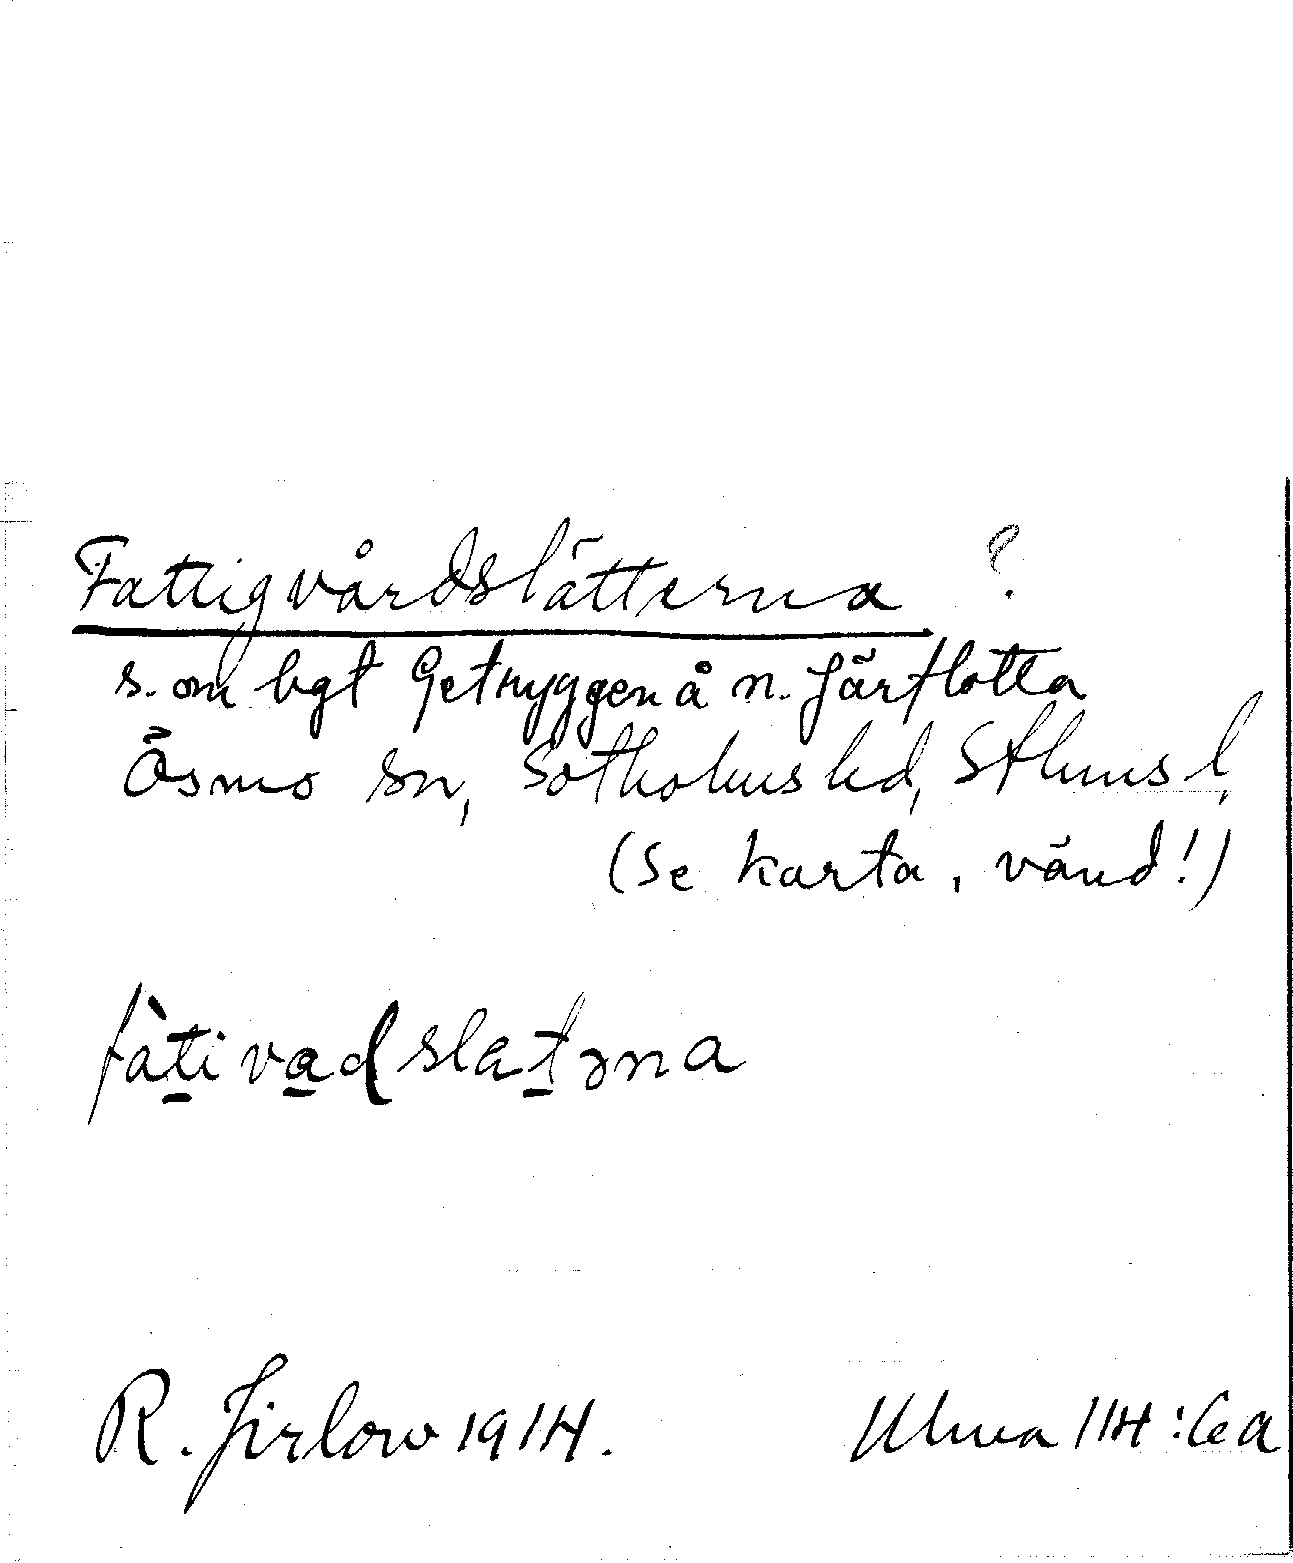 Fattigvårdslätterna ?
s. om bgt Getryggen å n. Järflotta
Ösmo sn, Sotholms hd, Sthms l,
(Se karta, vänd!)
fàtivadslatəna
R. Jirlow 1914.
Ulma 114: